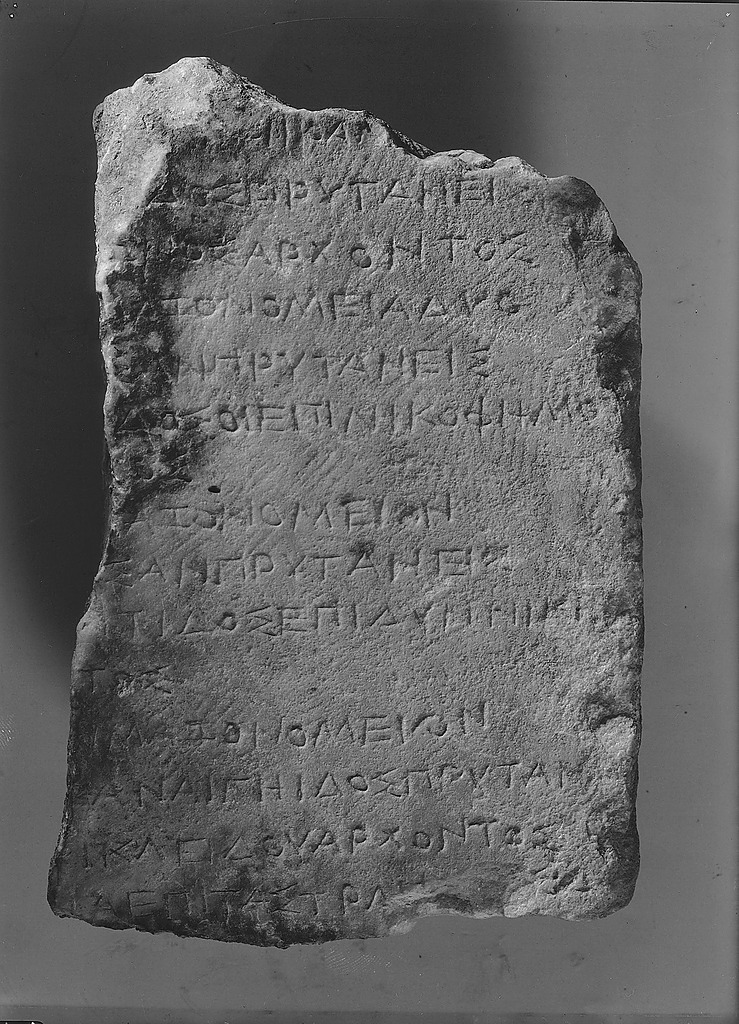 ΝΙΚΑΡ
ΔΟΣΠΡΥΤΑΝΕΙ
ΟΣΑΡΧΟΝΤΟΣ
ΑΞΟΝΟΜΕΙΑΔΥΟ
ΑΝΠΡΥΤΑΝΕΙΣ
ΔΟΣΟΙΕΠΙΛΗΚΟΦΗΜΟ
ΑΞΟΝΟΜΕΙΩΝ
ΣΑΝΠΡΥΤΑΝΕΙΣ
ΤΙΔΟΣΕΠΙΔΥΝΝΙΚΗ
ΤΟΣ
ΑΞΟΝΟΜΕΙΩΝ
ΑΝΑΙΓΗΙΔΟΣΠΡΥΤΑΝ
ΙΚΛΕΙΔΟΥΑΡΧΟΝΤΟΣ
ΔΕΠΙΤΑΣΤΡΑ